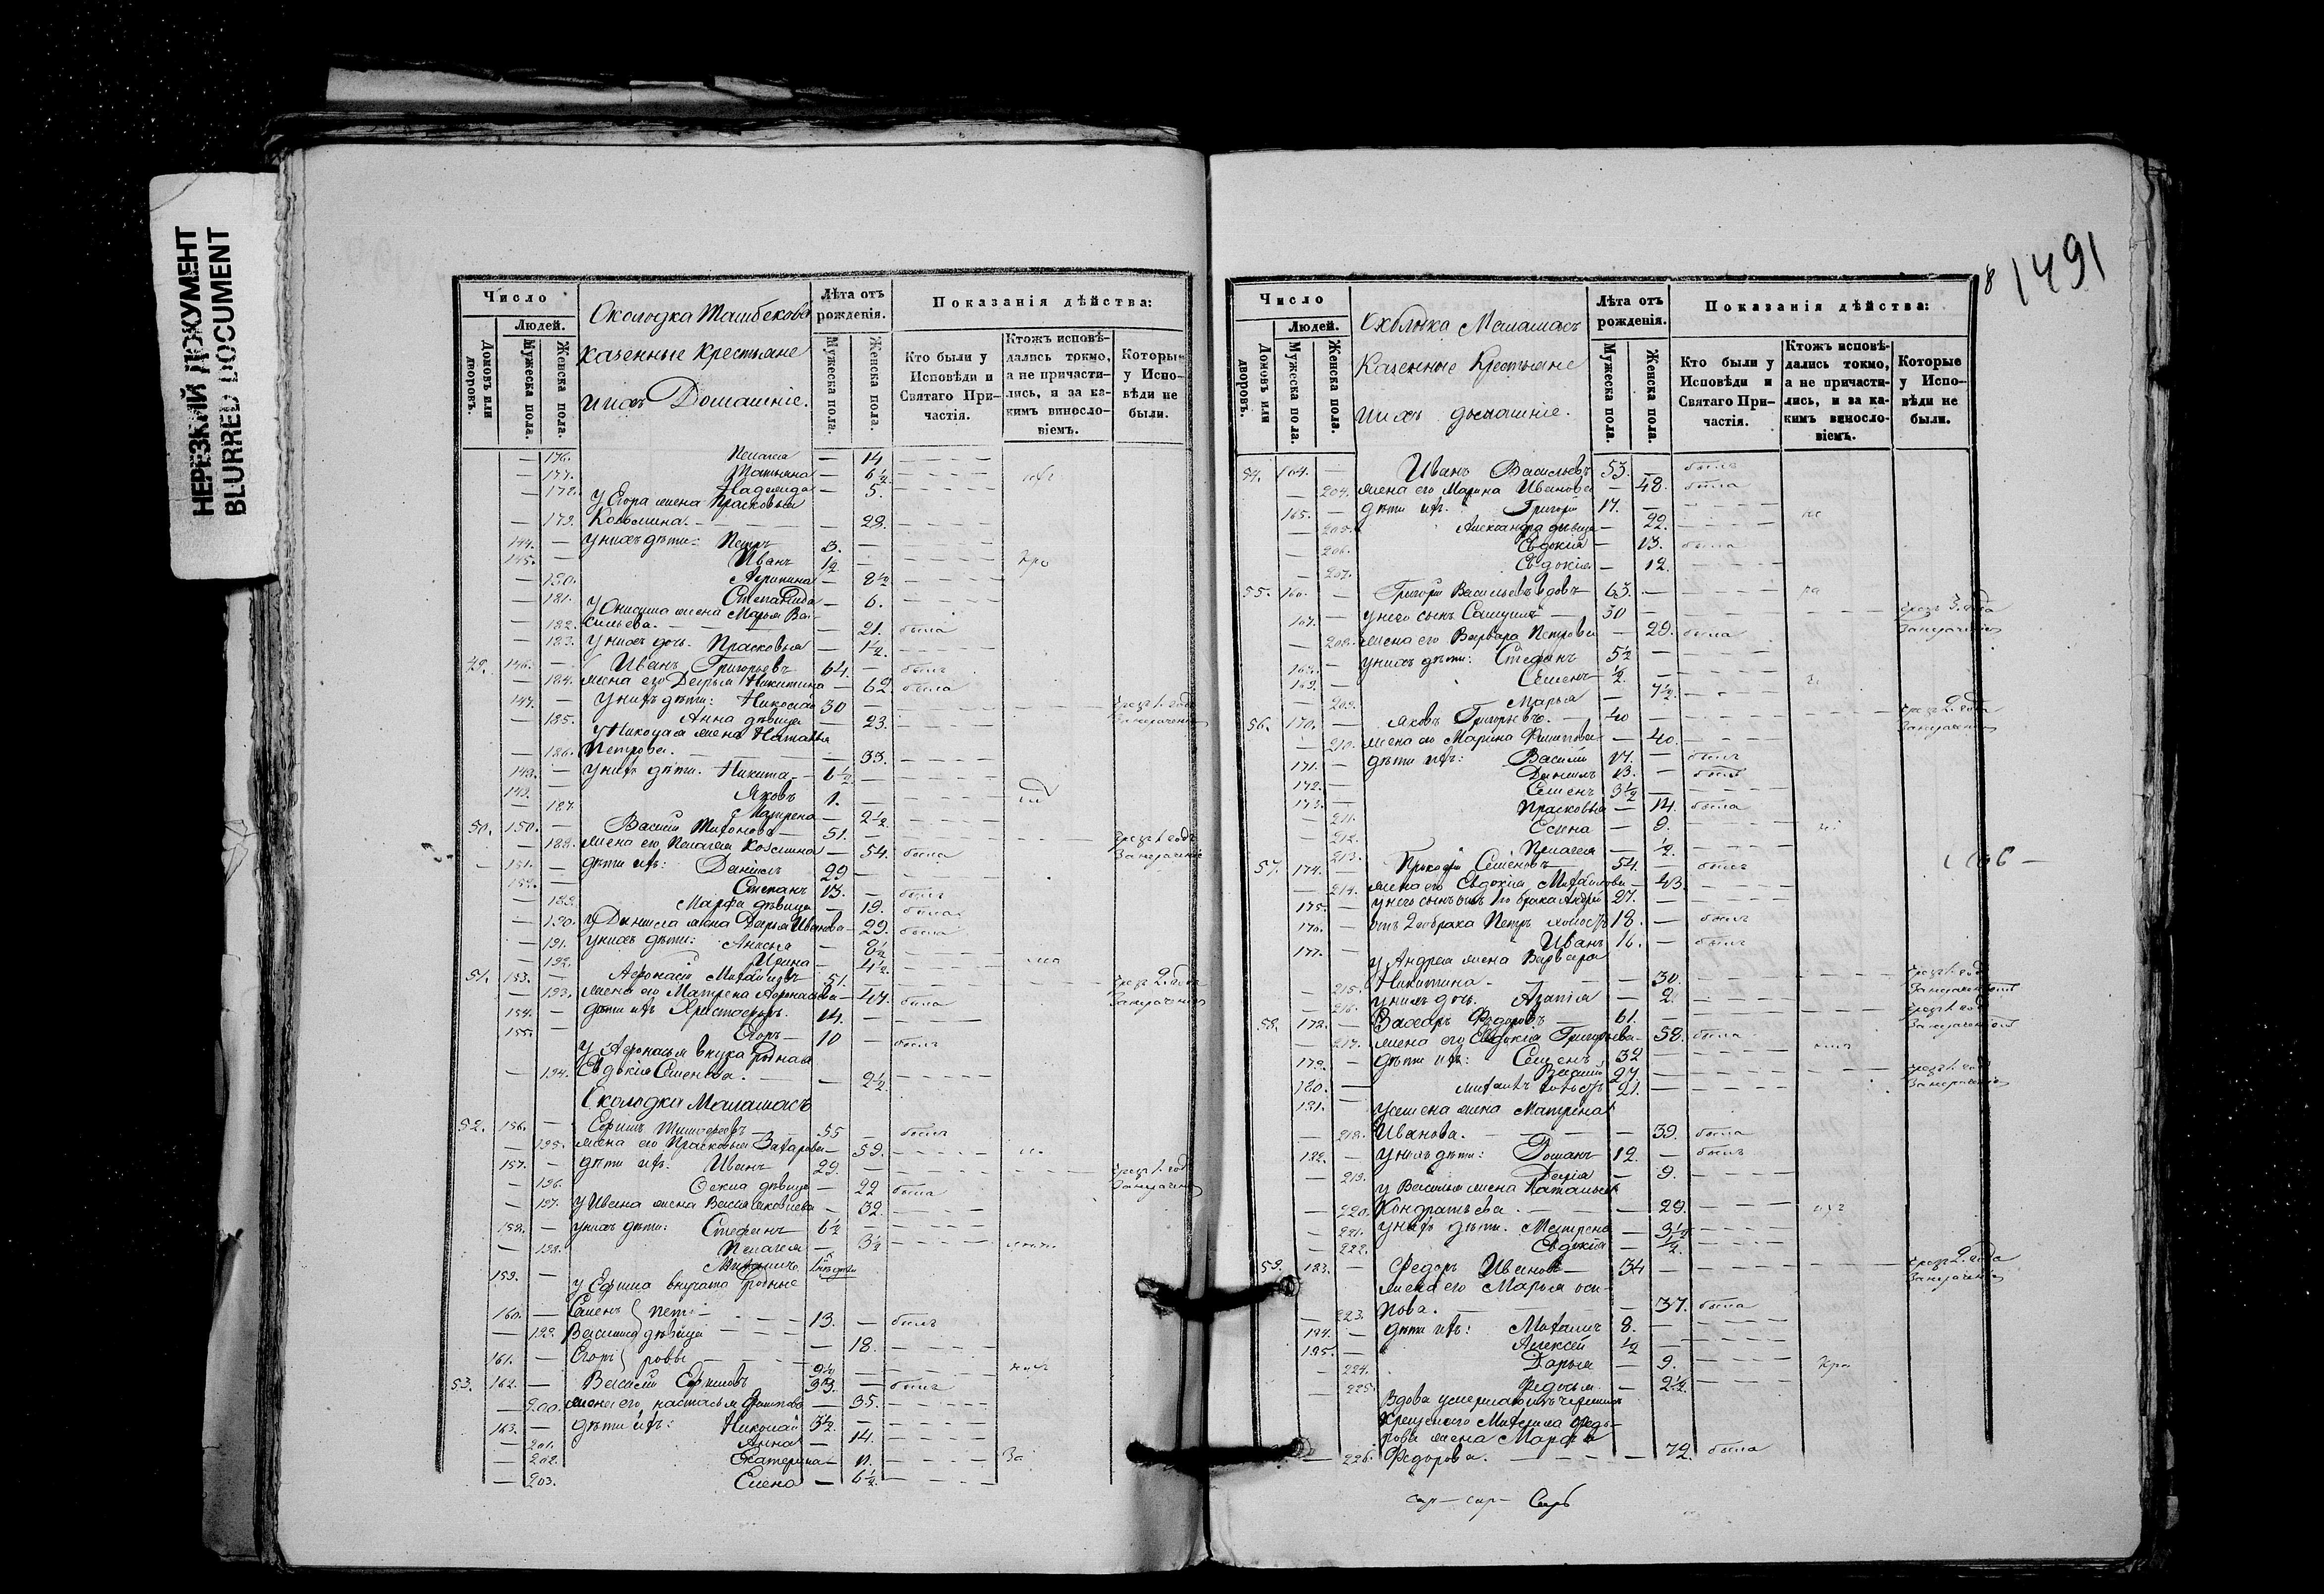 НЕРЕЗКИЙ ДОКУМЕНТ
BLURRED DOCUMENT
Число
Людей.
Домовъ или дворовъ.
Мужеска пола.
Женска пола.
Околодка Ташбекова
казенные крестьяне
и ихъ Домашніе.
Лѣта отъ рожденія.
Мужеска пола.
Женска пола.
Показанія дѣйства:
Кто были у Исповѣди и Святаго Причастія.
Ктожъ исповѣдались токмо, а не причастились, и за какимъ винословіемъ.
Которые у Исповѣди не были.
176. Пелагея — 14
177. Татьяна — 6½
178. Надежда — 5.
у Егора жена Прасковья
179. Козьмина. — 28.
144. у нихъ дѣти: Петръ 3.
145. Иванъ ½
180. Агрипина — 8½
181. Степанида — 6.
у Онисима жена Марья Ва-
182. сильева. — 21. была
183. у нихъ дочь Прасковья — 1½
49. 146. Иванъ Григорьевъ 64. былъ
184. жена его Дарья Никитина — 62. была
147. у нихъ дѣти: Николай 30
185. Анна дѣвица — 23.
у Николая жена Наталья
186. Петрова. — 33.
148. у нихъ дѣти: Никита 6½
149. Яковъ 1.
187. Матрена — 2½
50. 150. Василій 51.
188. жена его Пелагея Козмина — 54. была
151. дѣти ихъ: Даніилъ 29
152. Степанъ 13. былъ
189. Марфа дѣвица — 19. была
190. у Даніила жена Дарья Иванова — 29. была
191. у нихъ дѣти: Анисья — 8½
192. Ирина — 4½
51. 153. Афонасій Михайловъ 51.
193. жена его Матрена Афонасьева — 47. была
154. дѣти ихъ Христофоръ 14.
155. Егоръ 10 былъ
у Афонасья внука родная
194. Евдокія Семенова. — 2½
Околодка Малашасъ
52. 156. Ефимъ Тимофеевъ 55 былъ
195. жена его Прасковья Захарова — 59.
157. дѣти ихъ: Иванъ 29.
196. Фекла дѣвица — 22 была
197. у Ивана жена Васса Яковлева — 32.
158. у нихъ дѣти: Стефанъ 6½
198. Пелагея — 3½
159. Михаилъ
у Ефима внучата родные
160. Семенъ 13. былъ
199. Васса дѣвица — 18.
161. Егоръ 9½
53. 162. Василій Ефимовъ 33. былъ
200. жена его Настасья Филипова — 35.
163. дѣти ихъ: Николай 3½
201. Анна — 14.
202. Екатерина — 11.
203. Елена — 6½
8
1491
Число
Людей.
Домовъ или дворовъ.
Мужеска пола.
Женска пола.
Околодка Малашасъ
Казенные Крестьяне
и ихъ домашніе.
Лѣта отъ рожденія.
Мужеска пола.
Женска пола.
Показанія дѣйства:
Кто были у Исповѣди и Святаго Причастія.
Ктожъ исповѣдались токмо, а не причастились, и за какимъ винословіемъ.
Которые у Исповѣди не были.
54. 164. Иванъ Васильевъ 53. былъ
204. жена его Марина Иванова — 48. была
165. дѣти ихъ: Григорій 17.
205. Александра дѣвица — 22.
206. Евдокія — 13. была
207. Евдокія — 12.
55. 166. Григорій Васильевъ вдовъ 63.
167. у него сынъ Самуилъ 30
208. жена его Варвара Петрова — 29. была
168. у нихъ дѣти: Стефанъ 5½
169. Семенъ ½.
209. Марья — 7½.
56. 170. Яковъ Григорьевъ. 40
210. жена его Марина Филипова — 40.
171. дѣти ихъ: Василій 17. былъ
172. Даніилъ 13. былъ
173. Семенъ 3½
211. Прасковья — 14. была
212. Елена — 9.
213. Пелагея — ½.
57. 174. Прокофій Семеновъ 54. былъ
214. жена его Евдокія Михайлова — 43.
175. у него сынъ отъ 1го брака Андрей 27.
176. отъ 2го брака Петръ холостъ 18. былъ
177. Иванъ 16. былъ
у Андрея жена Варвара
215. Никитина. — 30.
216. у нихъ дочь Агапія — 2.
58. 178. Захаръ Федоровъ 61.
217. жена его Евдокія Григорьева — 58. была
179. дѣти ихъ: Семенъ 32
180. Василій 27
181. Михаилъ холостъ 21.
у Семена жена Матрена
218. Иванова. — 39. была
182. у нихъ дѣти: Романъ 12. былъ
219. Дарія — 9.
у Василья жена Наталья
220. Кондратьева. — 29.
221. у нихъ дѣти. Матрена — 3½
222. Евдокія — ½.
59. 183. Федоръ Ивановъ 34
жена его Марья Оси-
223. пова. — 37. была
184. дѣти ихъ: Михаилъ 8.
185. Алексѣй ½
224. Дарья — 9.
225. Федосья — 2½.
Вдова умершаго изъ черемисъ
крещенаго Михаила Федо-
рова жена Марфа
226. Федорова. — 72. была